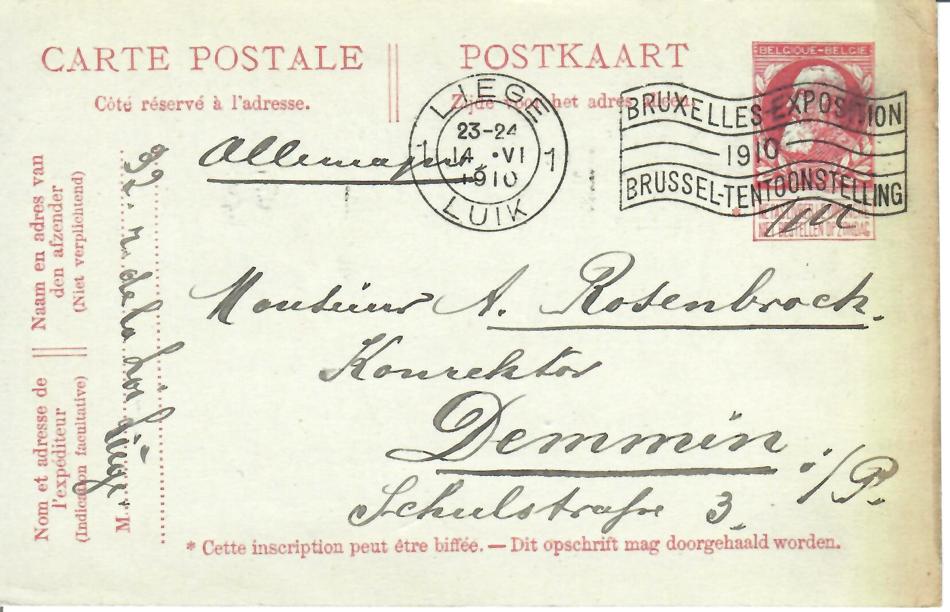 CARTE POSTALE
POSTKAART
Côté réservé à l'adresse.
Zijde voor het adres alleen.
BELGIQUE-BELGIE
LIEGE
23-24
1 14 · VI 1
1910
LUIK
BRUXELLES-EXPOSITION
1910
BRUSSEL-TENTOONSTELLING
NIET BESTELLEN OP ZONDAG
Allemagne
Monsieur A. Rosenbrock.
Konrektor
Demmin i/P.
Schulstraße 3.
Naam en adres van
den afzender
(Niet verplichtend)
Nom et adresse de
l'expéditeur
(Indication facultative)
M.
92 r de la Liège
* Cette inscription peut être biffée. — Dit opschrift mag doorgehaald worden.